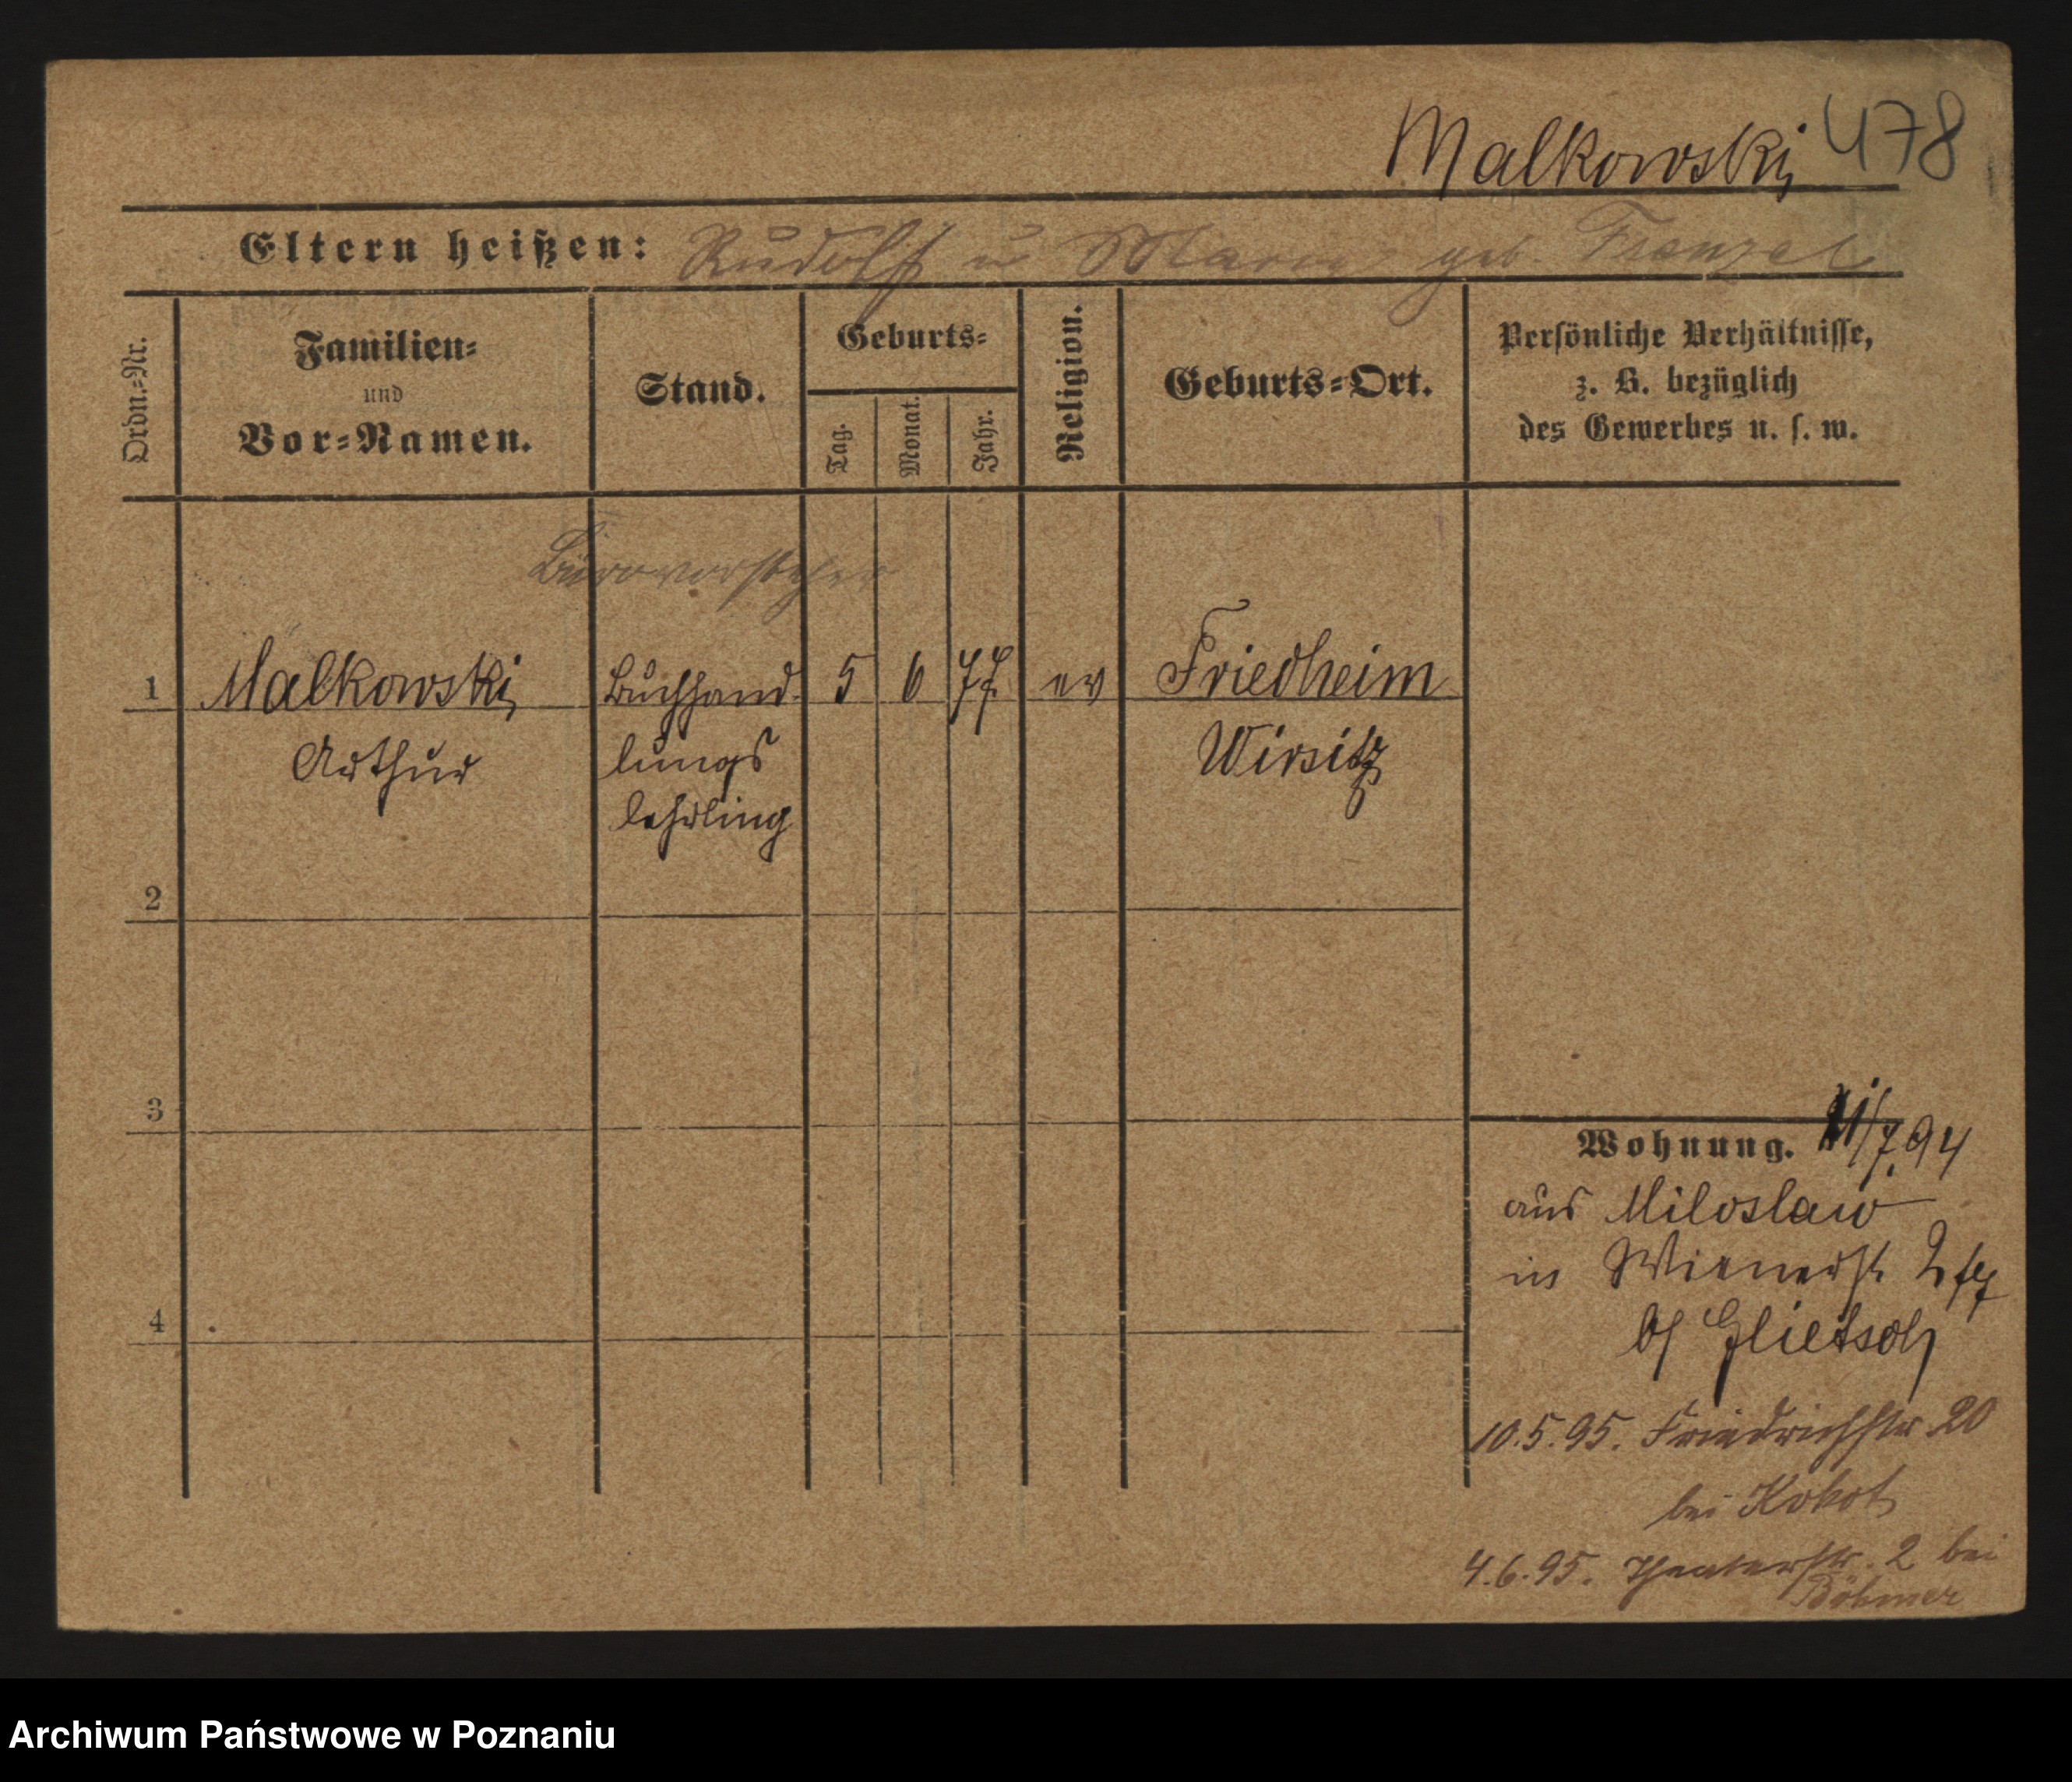 Malkowski 478
Eltern heißen: Rudolf u Marie geb. Frenzel
Ordn.-Nr.
Familien-
und
Vor-Namen.
Stand.
Geburts-
Tag.
Monat.
Jahr.
Religion.
Geburts-Ort.
Persönliche Verhältnisse,
z. B. bezüglich
des Gewerbes u. s. w.
Bürovorsteher
1 Malkowski Buchhand- 5 6 77 ev Friedheim
Arthur lungs Wirsitz
lehrling
2
3
4
Wohnung. 11/7.94
aus Miloslaw
in Wienerst. 2
bei Glietsch
10.5.95. Friedrichstr 20
bei Kokot
4.6.95. Theaterstr. 2 bei
Böhmer
Archiwum Państwowe w Poznaniu